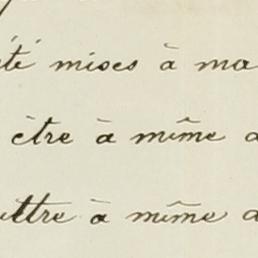 été mises à ma
être à même d
ettre à même d